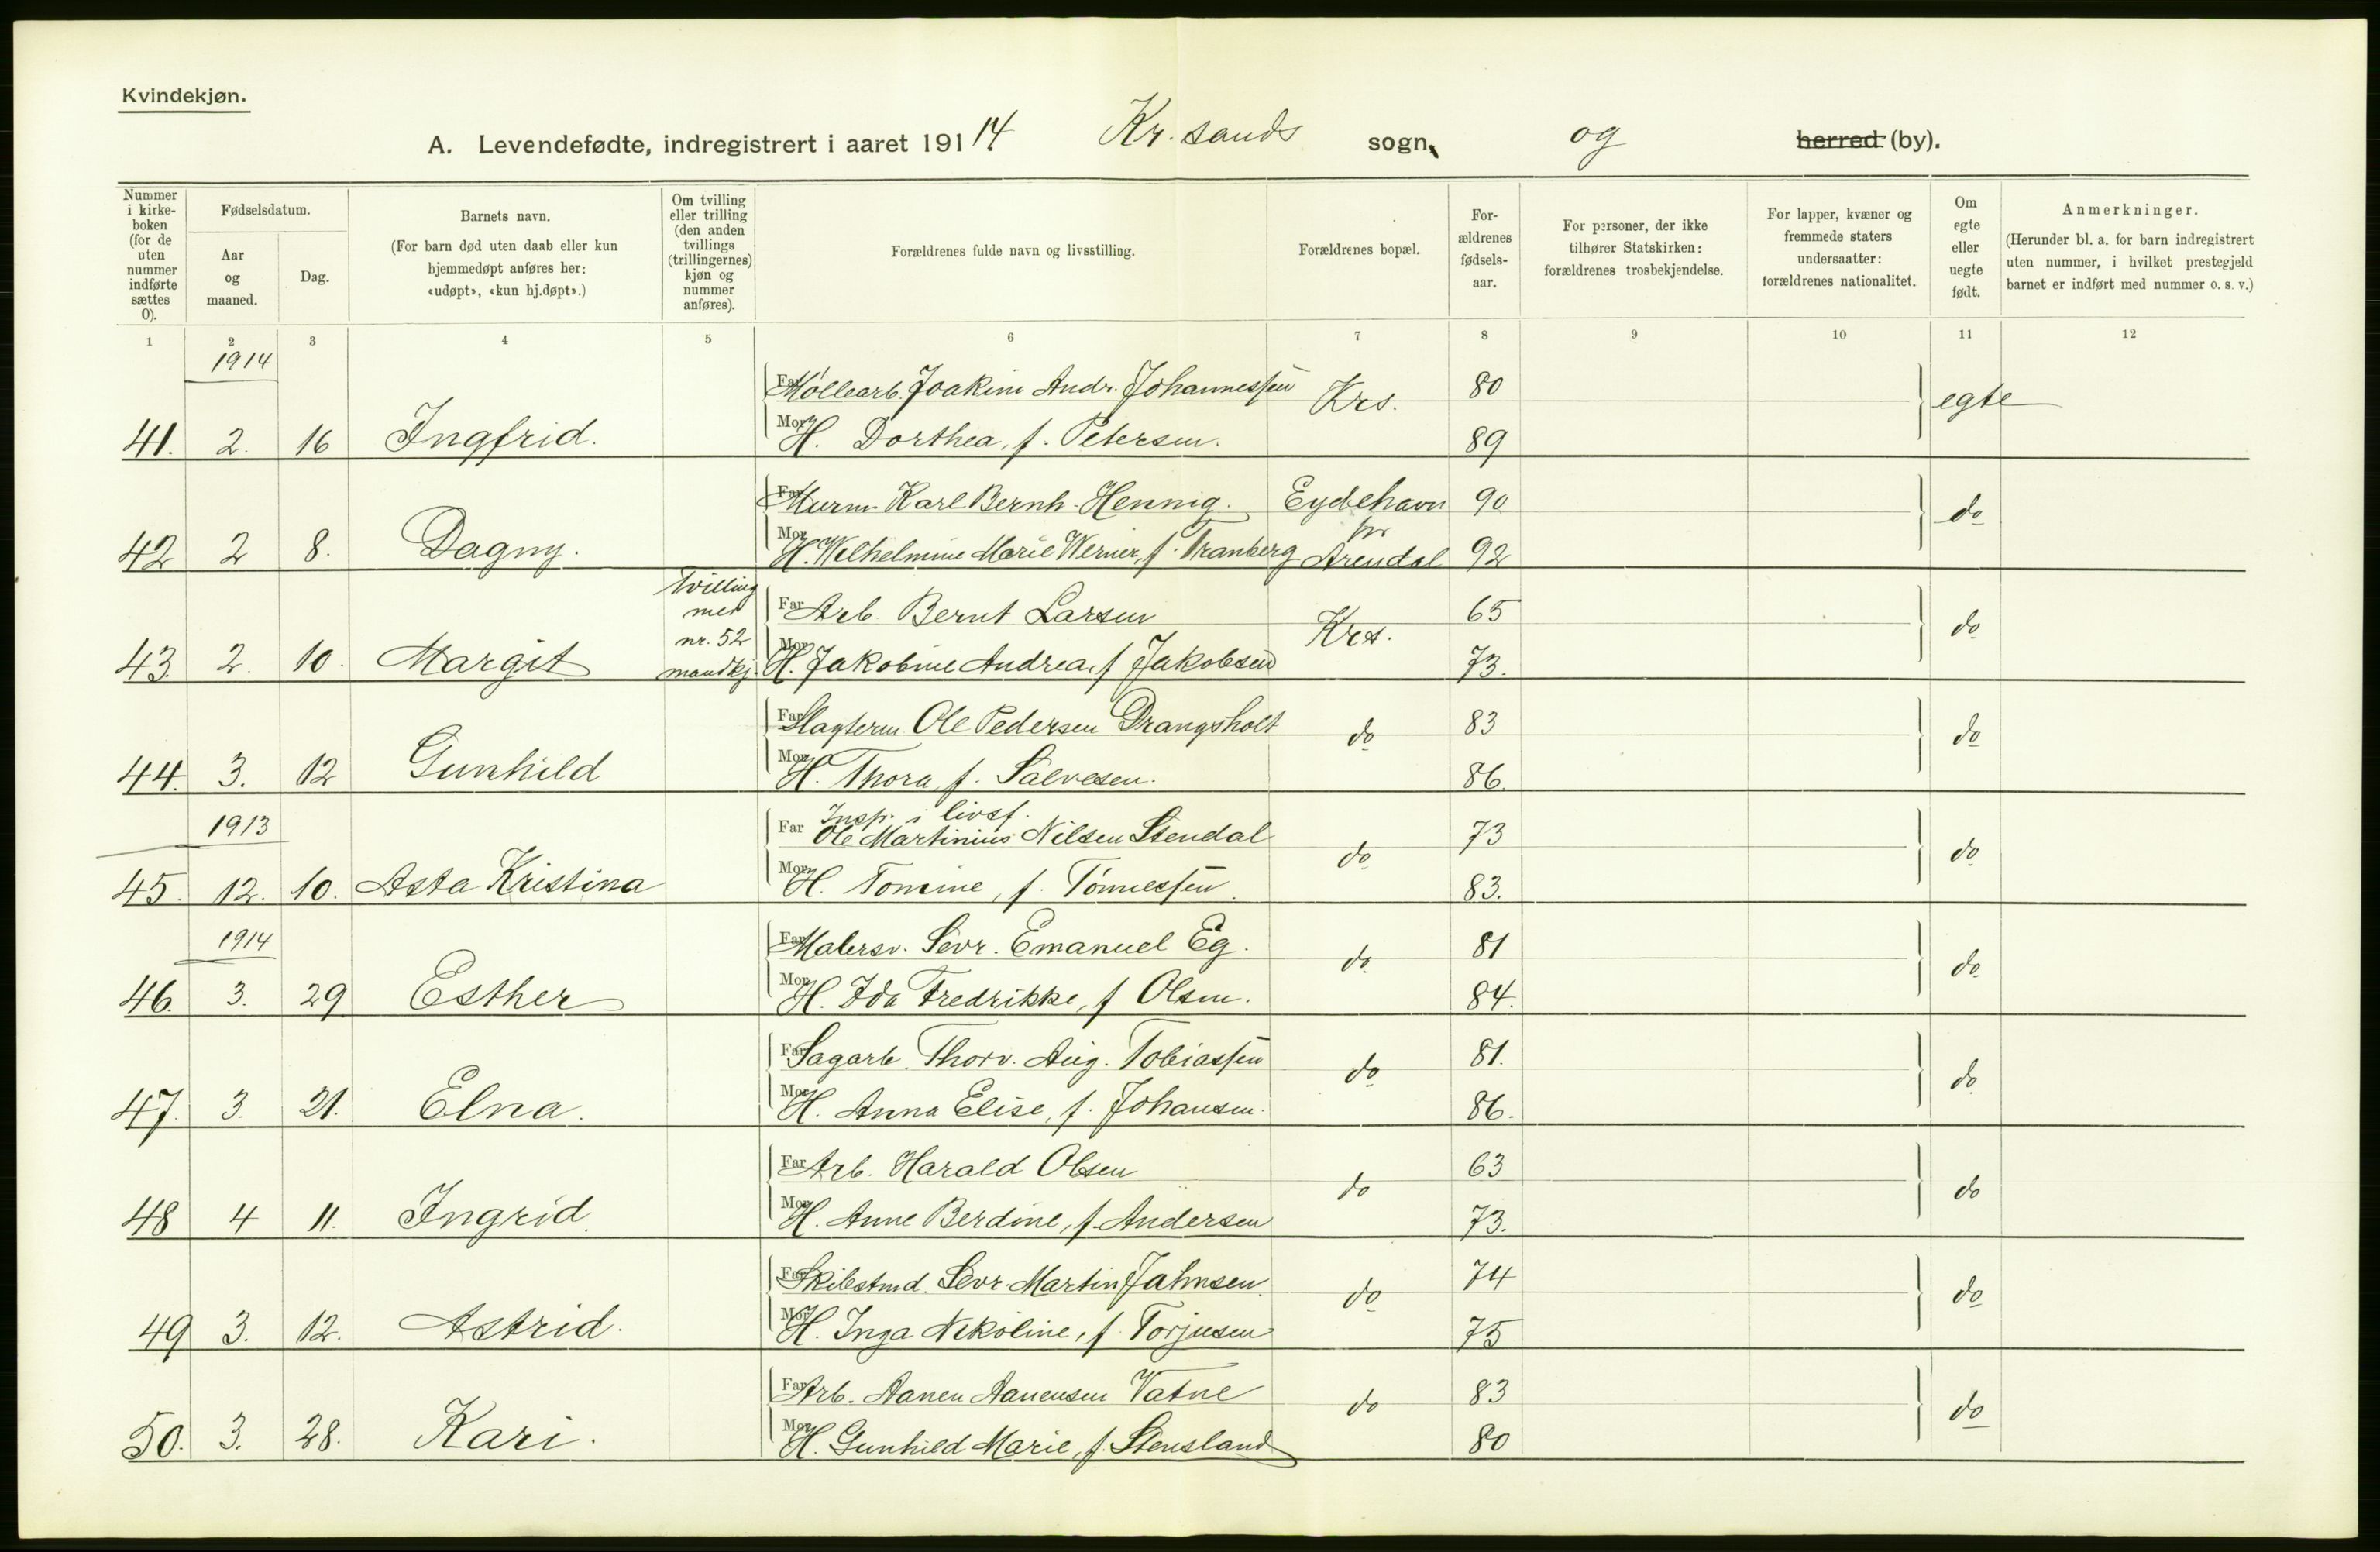 Kvindekjøn.
A. Levendefødte, indregistrert i aaret 191 14 Kr. sands sogn, og herred (by).
Nummer i kirkeboken (for de uten nummer indførte sættes 0).
Fødselsdatum.
Aar og maaned.
Dag.
Barnets navn.
(For barn død uten daab eller kun hjemmedøpt anføres her: «udøpt», «kun hj.døpt».)
Om tvilling eller trilling (den anden tvillings (trillingernes) kjøn og nummer anføres).
Forældrenes fulde navn og livsstilling.
Forældrenes bopæl.
Forældrenes fødselsaar.
For personer, der ikke tilhører Statskirken: forældrenes trosbekjendelse.
For lapper, kvæner og fremmede staters undersaatter: forældrenes nationalitet.
Om egte eller uegte født.
Anmerkninger.
(Herunder bl. a. for barn indregistrert uten nummer, i hvilket prestegjeld barnet er indført med nummer o. s. v.)
1 2 3 4 5 6 7 8 9 10 11 12
1914
Far Møllearb. Joakim Andr. Johannessen Krs. 80 egte
41. 2. 16 Ingfrid. Mor H. Dorthea, f. Petersen. 89
Far Murm. Karl Bernh. Hennig. Eydehavn 90 do
pr
42 2 8. Dagny. Mor H. Wilhelmine Marie Werner, f. Tranberg Arendal 92
Tvilling
med Far Arb. Bernt Larsen Krs. 65 do
nr. 52
43. 2. 10. Margit mandkj. Mor H. Jakobine Andrea, f Jakobsen 73.
Far Slagterm Ole Pedersen Drangsholt do 83 do
44. 3. 12 Gunhild Mor H. Thora, f. Salvesen. 86.
1913 Insp. i livsf.
Far Ole Martinius Nilsen Stendal do 73 do
45. 12. 10. Asta Kristina Mor H. Tomine, f. Tönnessen. 83.
1914 Far Malersv. Sevr. Emanuel Eg. do 81 do
46. 3. 29. Esther Mor H. Ida Fredrikke, f Olsen. 84.
Far Sagarb. Thorv. Aug. Tobiassen do 81. do
47. 3. 21. Elna. Mor H. Anna Elise, f. Johansen. 86.
Far Arb. Harald Olsen do 63 do
48 4 11. Ingrid. Mor H. Anne Berdine, f. Andersen 73.
Far Skibstmd. Sevr. Martin Jahnsen. do 74 do
49 3. 12. Astrid. Mor H. Inga Nikoline, f. Torjusen 75
Far Arb. Aanen Aanensen Vatne do 83 do
50. 3. 28. Kari. Mor H. Gunhild Marie, f. Stensland 80